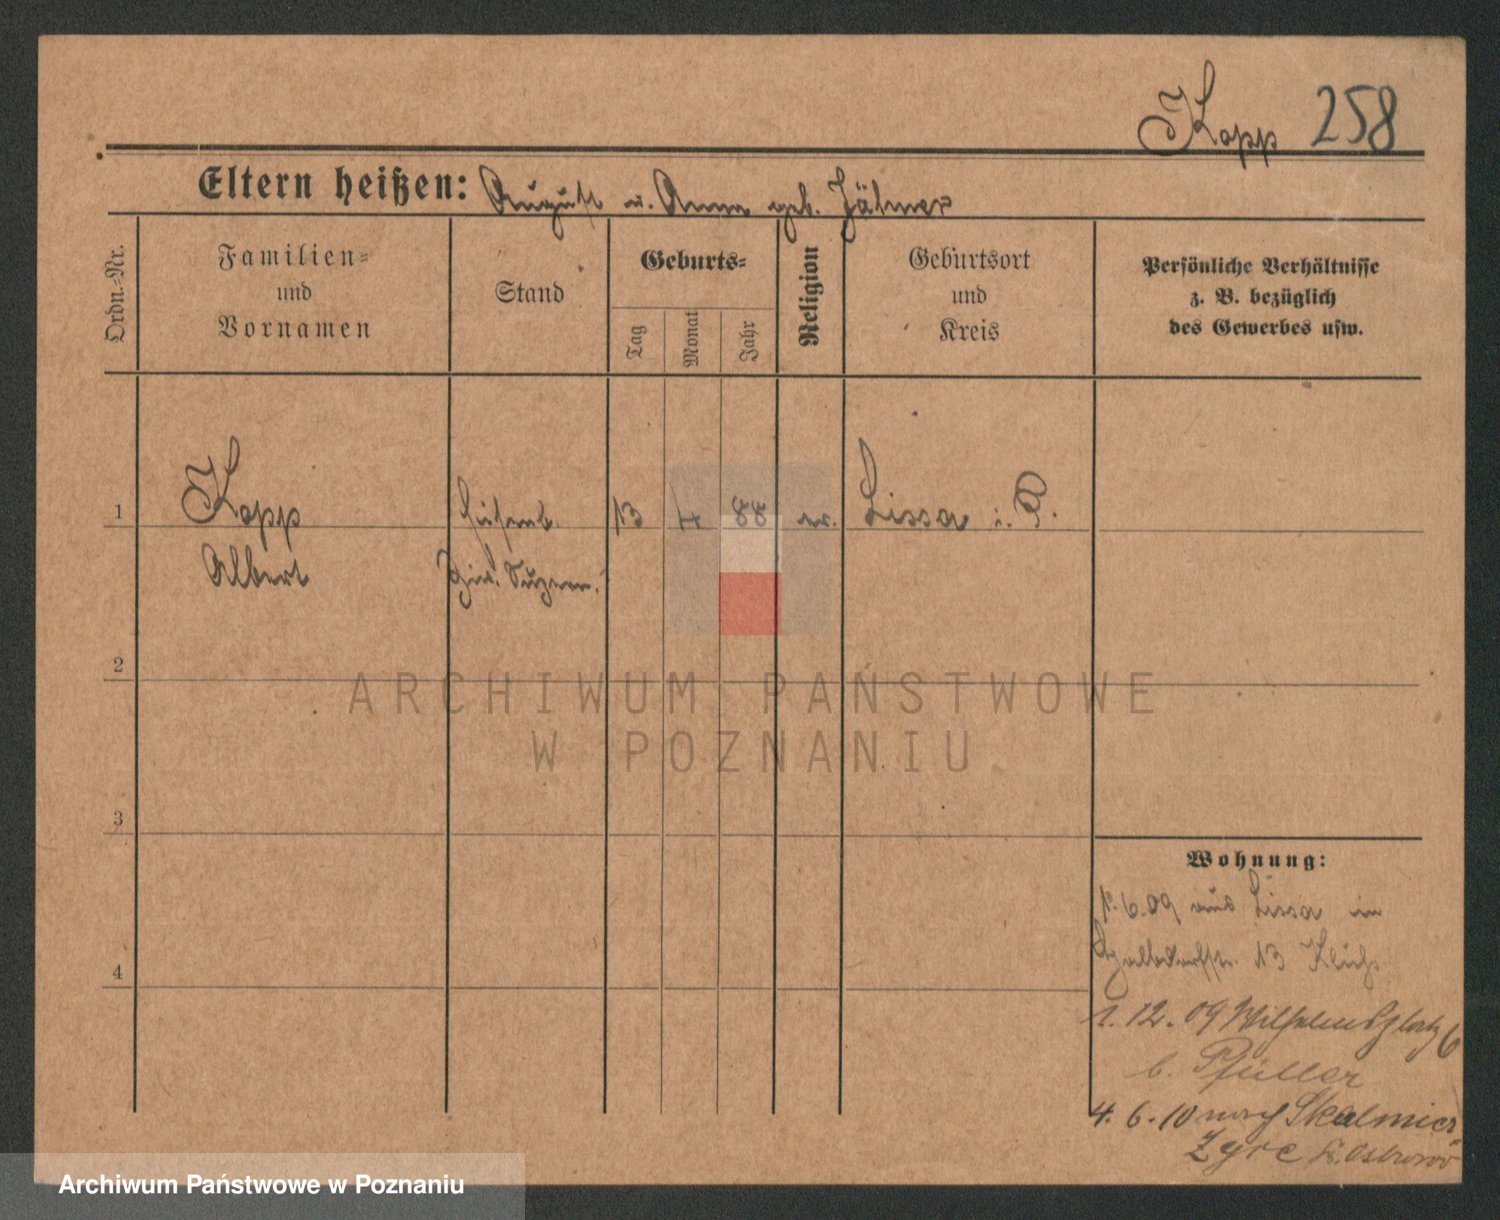 Kopp 258
Eltern heißen: August u. Anna geb. Jähner
Ordn.-Nr.
Familien-
und
Vornamen
Stand
Geburts-
Tag
Monat
Jahr
Religion
Geburtsort
und
Kreis
Persönliche Verhältnisse
z. B. bezüglich
des Gewerbes usw.
1
Kopp
Albert
13 4 88 ev. Lissa i. P.
2
ARCHIWUM PAŃSTWOWE
W POZNANIU
3
4
Wohnung:
1.6.09 aus Lissa in
13
1. 12. 09 Wilhelmsplatz 6
b. Pfüller
4. 6. 10 nach Skalmier
zyce K. Ostrowo
Archiwum Państwowe w Poznaniu